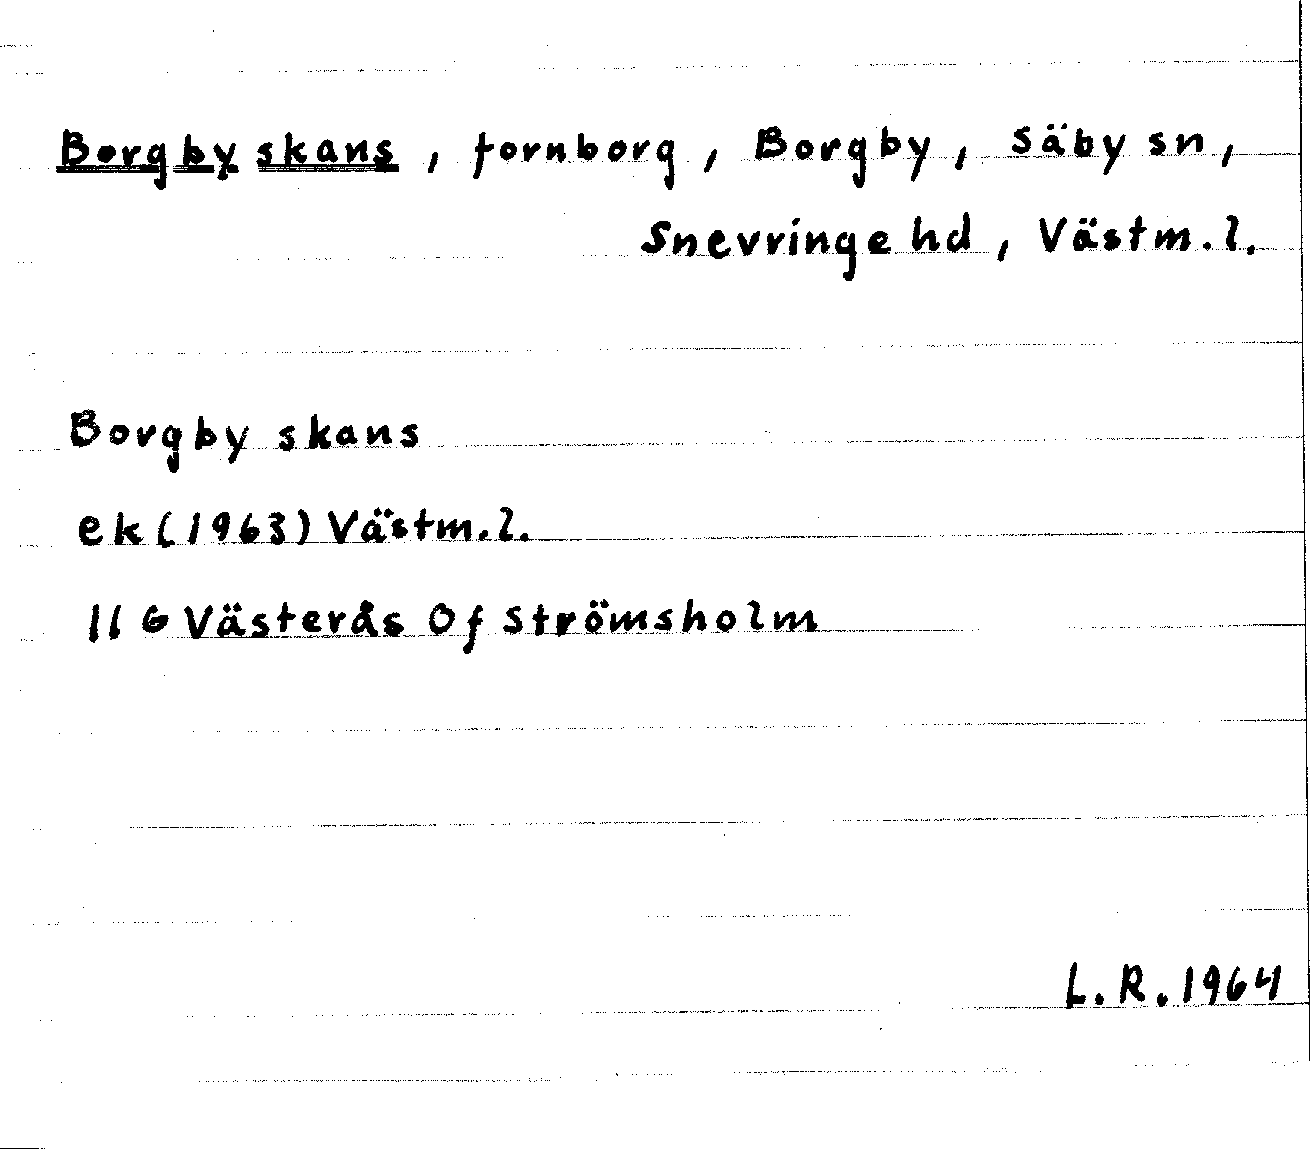 Borgby skans, fornborg, Borgby, Säby sn,
Snevringe hd, Västm.l.
Borgby skans
ek (1963) Västm.l.
11 G Västerås 0f Strömsholm
L.R. 1964